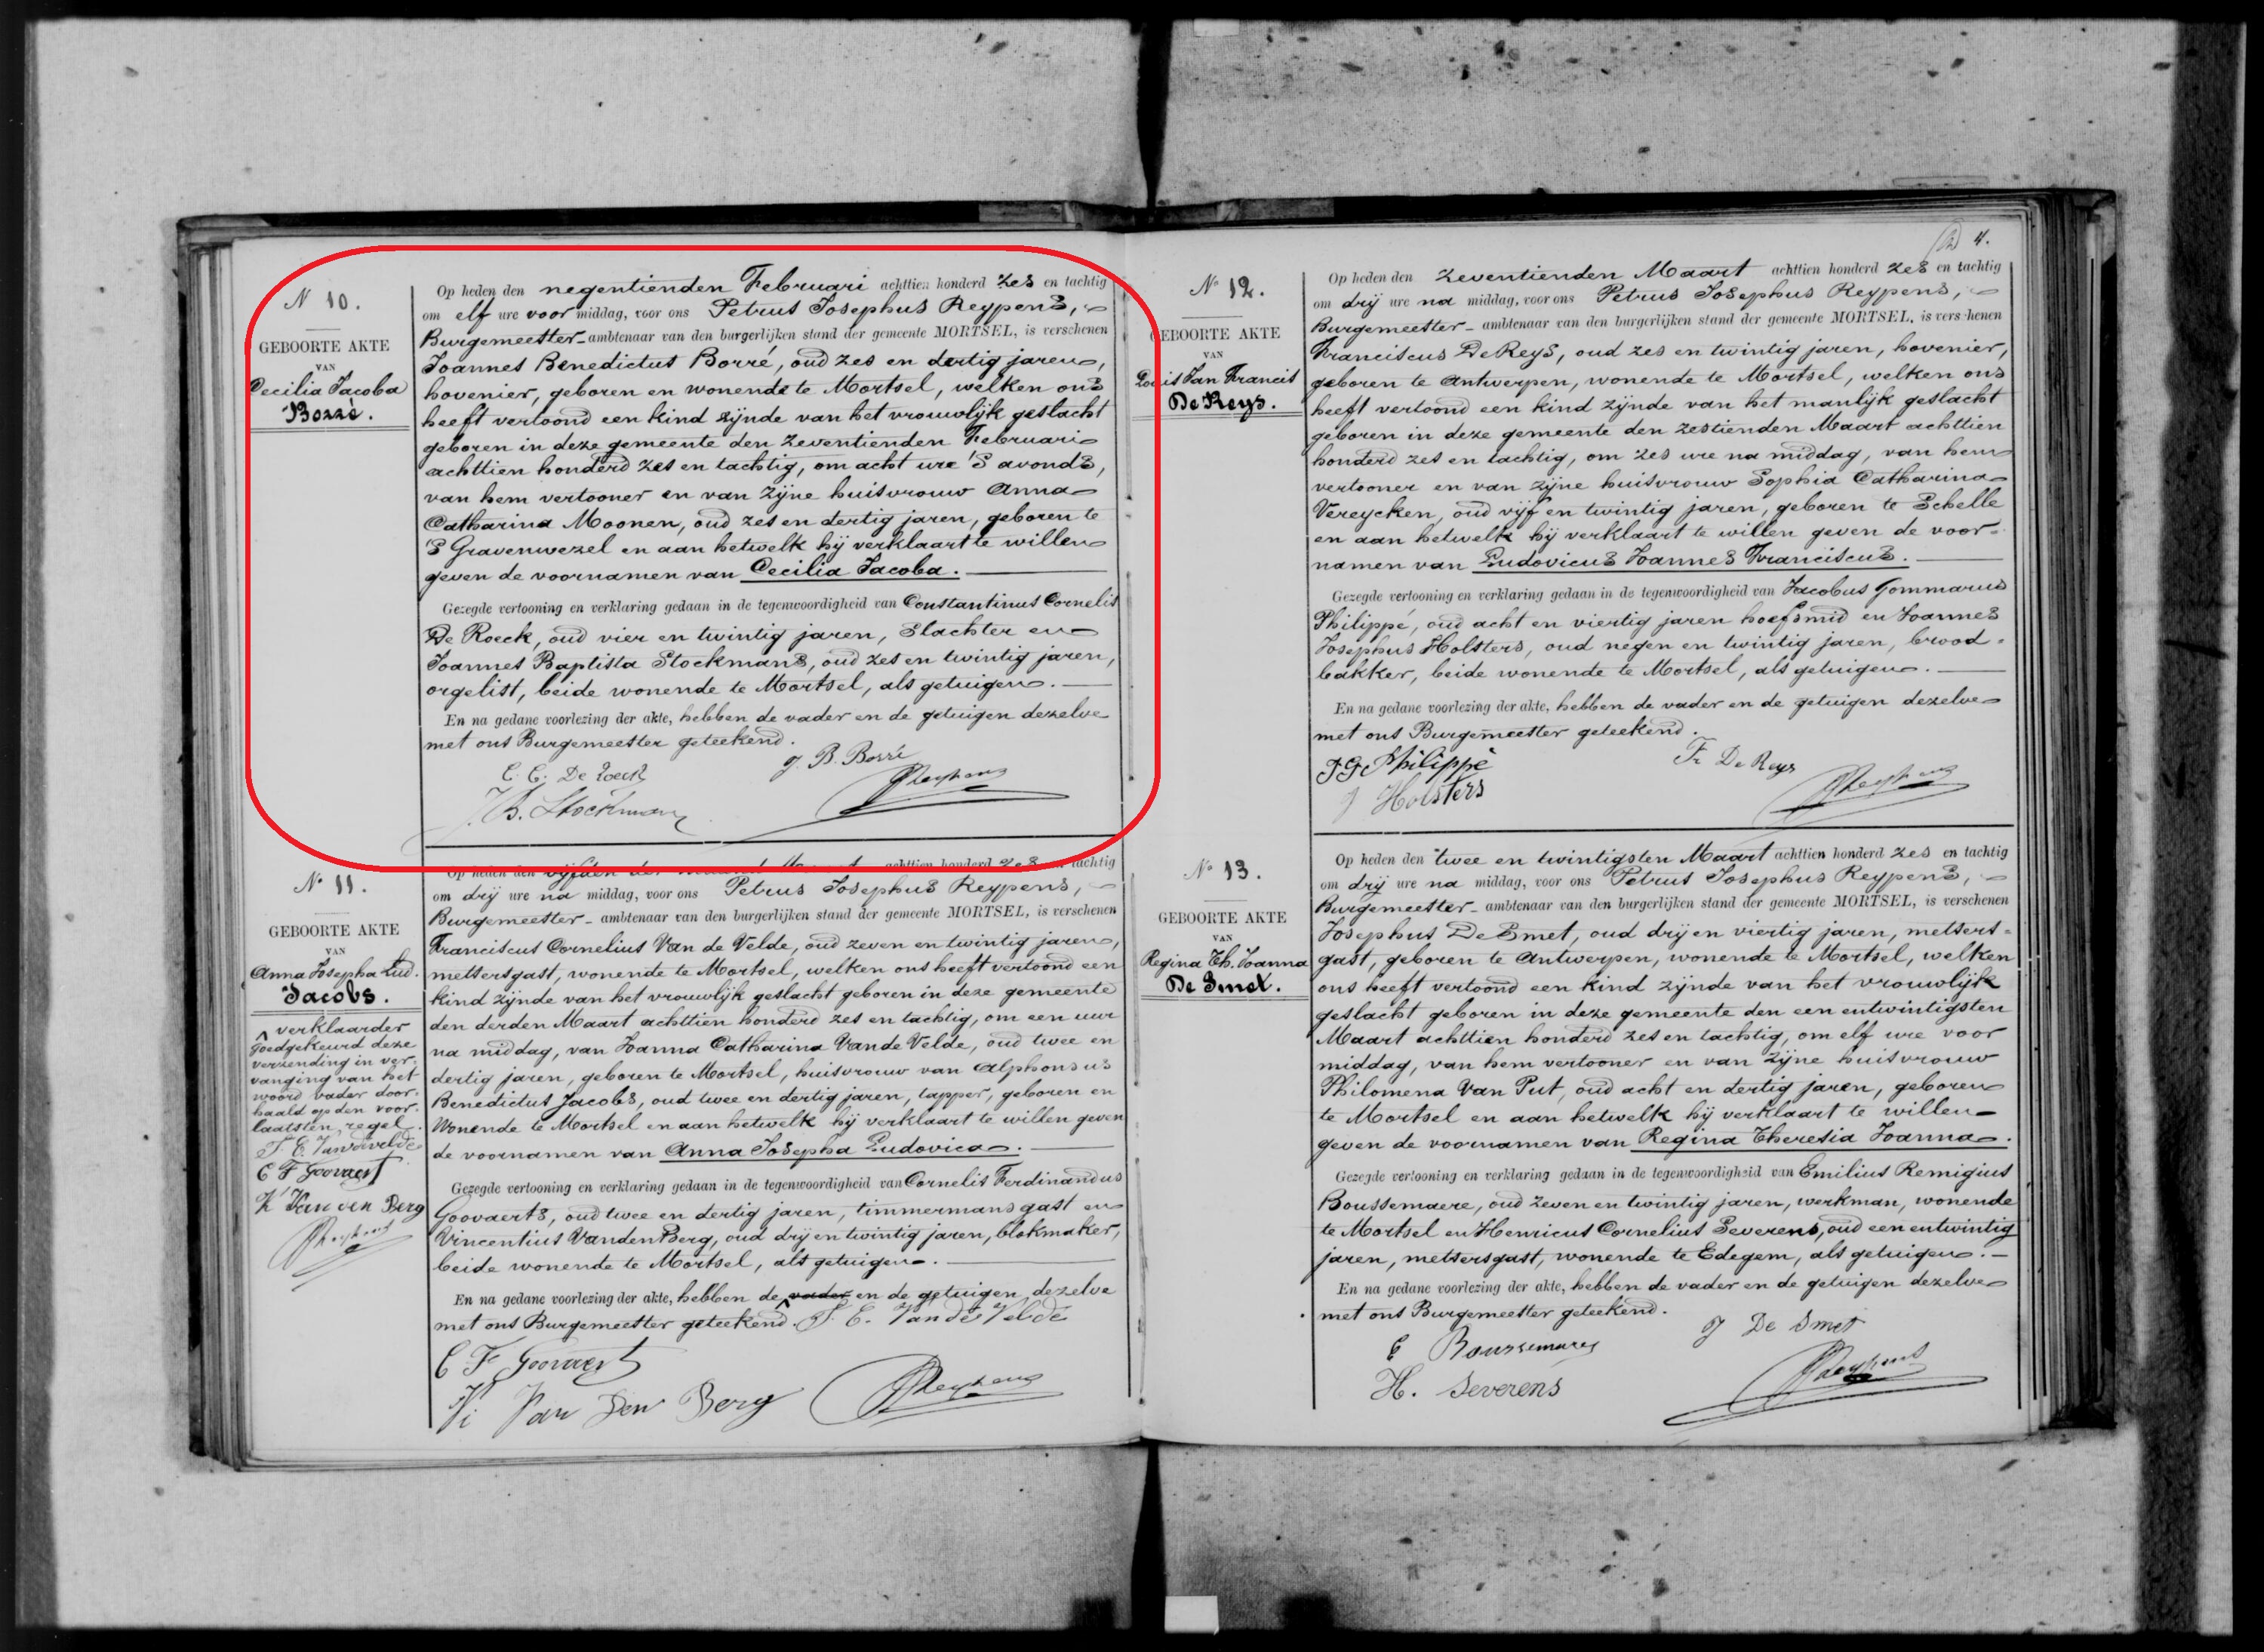 N 10.
GEBOORTE AKTE
VAN
Cecilia Jacoba
Borré.
Op heden den negentienden Februari achttien honderd zes en tachtig
om elf ure voor middag, voor ons Petrus Josephus Reypens,
Burgemeester ambtenaar van den burgerlijken stand der gemeente MORTSEL, is verschenen
Joannes Benedictus Borré, oud zes en dertig jaren,
hovenier, geboren en wonende te Mortsel, welken ons
heeft vertoond een kind zijnde van het vrouwlijk geslacht
geboren in deze gemeente den zeventienden Februari
achttien honderd zes en tachtig, om acht ure 'S avonds,
van hem vertooner en van zijne huisvrouw Anna
Catharina Moonen, oud zes en dertig jaren, geboren te
'S Gravenwezel en aan hetwelk hij verklaart te willen
geven de voornamen van Cecilia Jacoba.
Gezegde vertooning en verklaring gedaan in de tegenwoordigheid van Constantinus Cornelis
De Roeck, oud vier en twintig jaren, slachter en
Joannes Baptista Stockmans, oud zes en twintig jaren,
orgelist, beide wonende te Mortsel, als getuigen.
En na gedane voorlezing der akte, hebben de vader en de getuigen dezelve
met ons Burgemeester geteekend.
J. B. Borré
C. C. De Roeck
PReypens
J. B. Stockmans
No 11.
GEBOORTE AKTE
VAN
Anna Josepha Lud.
Jacobs.
verklaarder
Goedgekeurd deze
verzending in ver-
vanging van het
woord vader door-
haald op den voor-
laatsten regel.
F. C. Van de Velde
C F Goovaerts
V Van den Berg
PReypens
Op heden den vijfden der maand Maart achttien honderd zes en tachtig
om drij ure na middag, voor ons Petrus Josephus Reypens,
Burgemeester ambtenaar van den burgerlijken stand der gemeente MORTSEL, is verschenen
Franciscus Cornelius Van de Velde, oud zeven en twintig jaren,
metsersgast, wonende te Mortsel, welken ons heeft vertoond een
kind zijnde van het vrouwlijk geslacht geboren in deze gemeente
den derden Maart achttien honderd zes en tachtig, om een uur
na middag, van Joanna Catharina Van de Velde, oud twee en
dertig jaren, geboren te Mortsel, huisvrouw van Alphonsus
Benedictus Jacobs, oud twee en dertig jaren, tapper, geboren en
wonende te Mortsel en aan hetwelk hij verklaart te willen geven
de voornamen van Anna Josepha Ludovica.
Gezegde vertooning en verklaring gedaan in de tegenwoordigheid van Cornelis Ferdinandus
Goovaerts, oud twee en dertig jaren, timmermansgast en
Vincentius Vanden Berg, oud drij en twintig jaren, blokmaker,
beide wonende te Mortsel, als getuigen.
En na gedane voorlezing der akte, hebben de vader en de getuigen dezelve
met ons Burgemeester geteekend. F. C. Van de Velde
C F Goovaerts
Vi Van Den Berg PReypens
4.
No 12.
GEBOORTE AKTE
VAN
Louis Jan Francis
De Reys.
Op heden den zeventienden Maart achttien honderd zes en tachtig
om drij ure na middag, voor ons Petrus Josephus Reypens,
Burgemeester ambtenaar van den burgerlijken stand der gemeente MORTSEL, is verschenen
Franciscus De Reys, oud zes en twintig jaren, hovenier,
geboren te Antwerpen, wonende te Mortsel, welken ons
heeft vertoond een kind zijnde van het manlijk geslacht
geboren in deze gemeente den zestienden Maart achttien
honderd zes en tachtig, om zes ure na middag, van hem
vertooner en van zijne huisvrouw Sophia Catharina
Vereycken, oud vijf en twintig jaren, geboren te Schelle
en aan hetwelk hij verklaart te willen geven de voor-
namen van Ludovicus Joannes Franciscus.
Gezegde vertooning en verklaring gedaan in de tegenwoordigheid van Jacobus Gommarus
Philippé, oud acht en viertig jaren hoefsmid en Joannes
Josephus Holsters, oud negen en twintig jaren, brood-
bakker, beide wonende te Mortsel, als getuigen.
En na gedane voorlezing der akte, hebben de vader en de getuigen dezelve
met ons Burgemeester geteekend.
Fr De Reys
J G Philippé
J Holsters
PReypens
No 13.
GEBOORTE AKTE
VAN
Regina Th. Joanna
De Smet.
Op heden den twee en twintigsten Maart achttien honderd zes en tachtig
om drij ure na middag, voor ons Petrus Josephus Reypens,
Burgemeester ambtenaar van den burgerlijken stand der gemeente MORTSEL, is verschenen
Josephus De Smet, oud drij en viertig jaren, metsers-
gast, geboren te Antwerpen, wonende te Mortsel, welken
ons heeft vertoond een kind zijnde van het vrouwlijk
geslacht geboren in deze gemeente den een entwintigsten
Maart achttien honderd zes en tachtig, om elf ure voor
middag, van hem vertooner en van zijne huisvrouw
Philomena Van Put, oud acht en dertig jaren, geboren
te Mortsel en aan hetwelk hij verklaart te willen
geven de voornamen van Regina Theresia Joanna.
Gezegde vertooning en verklaring gedaan in de tegenwoordigheid van Emilius Remigius
Boussemaere, oud zeven en twintig jaren, werkman, wonende
te Mortsel en Henricus Cornelius Severens, oud een entwintig
jaren, metsersgast, wonende te Edegem, als getuigen.
En na gedane voorlezing der akte, hebben de vader en de getuigen dezelve
met ons Burgemeester geteekend.
J De Smet
E Boussemaere
H. Severens
PReypens